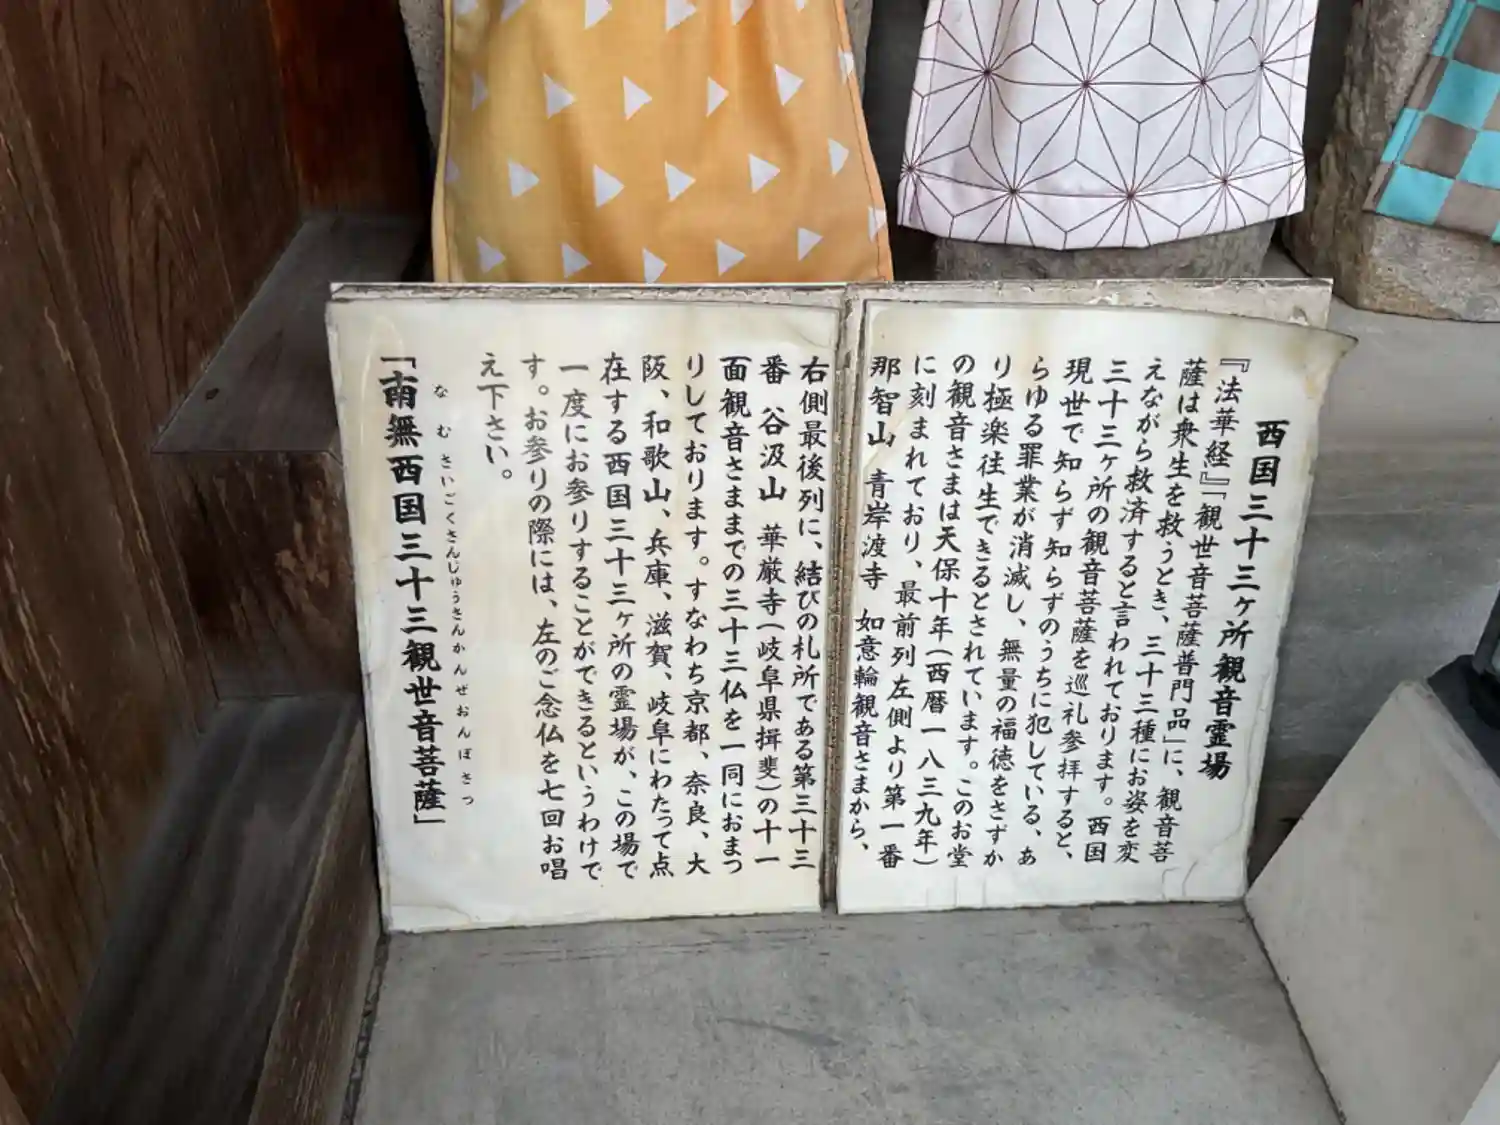 西国三十三ヶ所観音霊場
『法華経』「観世音菩薩普門品」に、観音菩
薩は衆生を救うとき、三十三種にお姿を変
えながら救済すると言われております。西国
三十三ヶ所の観音菩薩を巡礼参拝すると、
現世で知らず知らずのうちに犯している、あ
らゆる罪業が消滅し、無量の福徳をさずか
り極楽往生できるとされています。このお堂
の観音さまは天保十年(西暦一八三九年)
に刻まれており、最前列左側より第一番
那智山 青岸渡寺 如意輪観音さまから、
右側最後列に、結びの札所である第三十三
番 谷汲山 華厳寺(岐阜県揖斐)の十一
面観音さままでの三十三仏を一同におまつ
りしております。すなわち京都、奈良、大
阪、和歌山、兵庫、滋賀、岐阜にわたって点
在する西国三十三ヶ所の霊場が、この場で
一度にお参りすることができるというわけで
す。お参りの際には、左のご念仏を七回お唱
え下さい。
なむさいごくさんじゅうさんかんぜおんぼさつ
「南無西国三十三観世音菩薩」